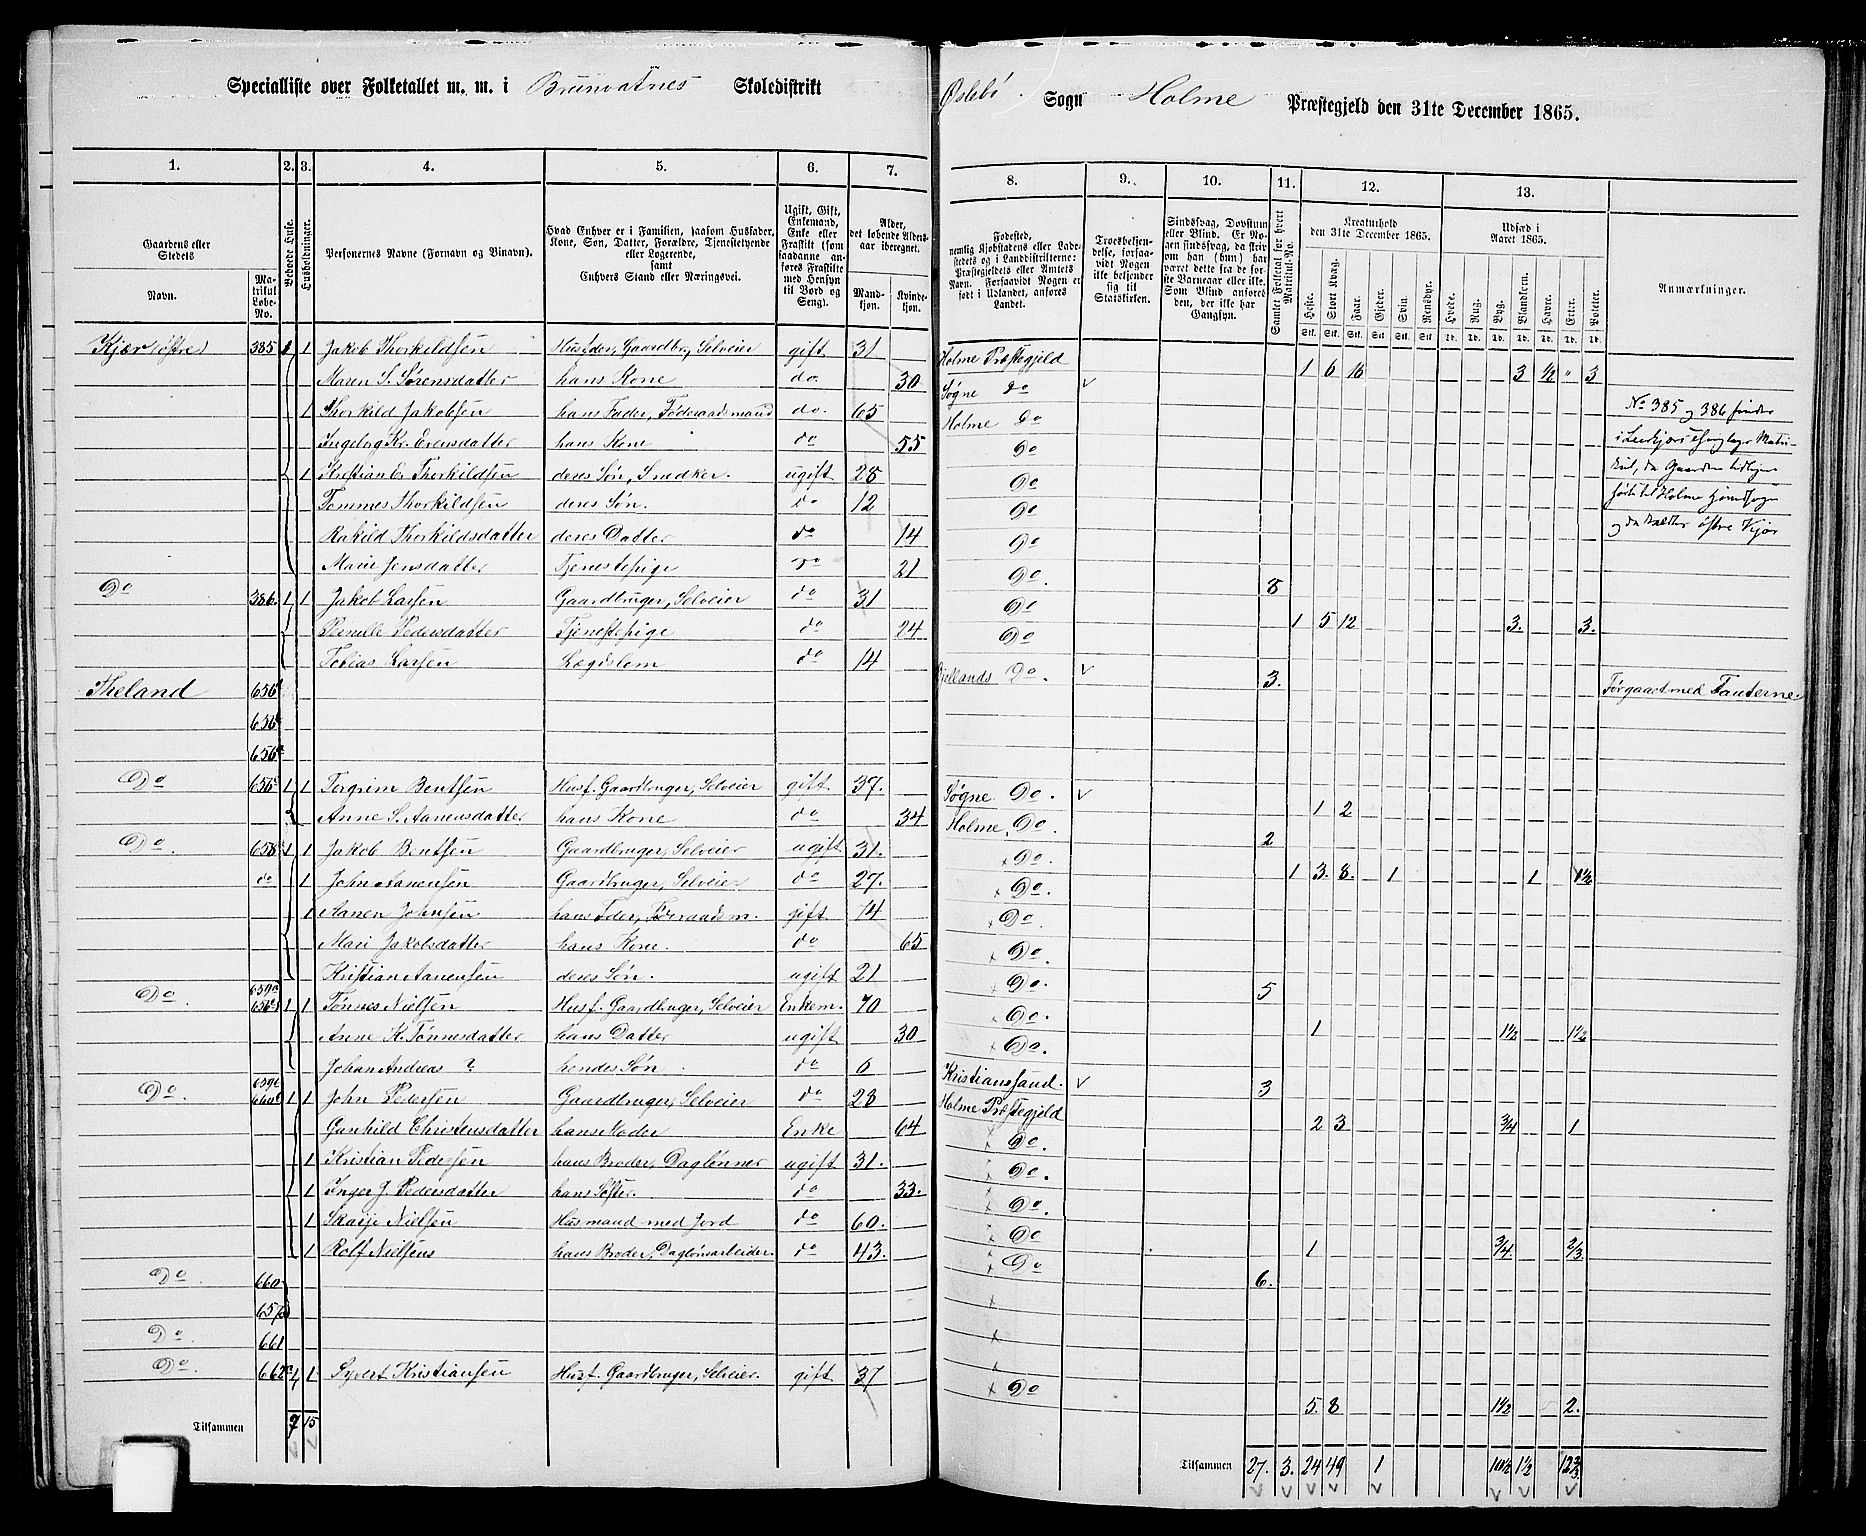 Specialliste over Folketallet m. m. i Brunvatnes Skoledistrikt Øslebø Sogn Holme Præstegjeld den 31te December 1865.
1. 2. 3. 4. 5. 6. 7. 8. 9. 10. 11. 12. 13.
Gaardens eller Stedets Navn. Matrikul Løbe-No. Beboede Huse. Husholdninger. Personernes Navne (Fornavn og Binavn). Hvad Enhver er i Familien, saasom Husfader, Kone, Søn, Datter, Forældre, Tjenestetyende eller Logerende, samt Enhvers Stand eller Næringsvei. Ugift, Gift, Enkemand, Enke eller Fraskilt (som saadanne anføres Fraskilte med Hensyn til Bord og Seng). Alder, det løbende Alders-aar iberegnet. Mandkjøn. Kvindekjøn.
Fødested, nemlig Kjøbstadens eller Ladestedets og i Landdistrikterne: Præstegjeldets eller Amtets Navn. Forsaavidt Nogen er født i Udlandet, anføres Landet. Troesbekjendelse, forsaavidt Nogen ikke bekjender sig til Statskirken. Sindssvag, Døvstum eller Blind. Er Nogen sindssvag, da skrives om han (hun) har været dette fra de første Barneaar eller ikke. Som Blind anføres den, der ikke har Gangsyn. Samlet Folketal for hvert Matrikul-No. Kreaturhold den 31te December 1865. Udsæd i Aaret 1865. Anmærkninger.
Heste. Stort Kvæg. Faar. Gjeder. Svin. Rensdyr. Hvede. Rug. Byg. Blandkorn. Havre. Erter. Poteter.
Kjær (østre) 385 1 1 Jakob Thorkildsen Husfader, Gaardbr., Selveier gift 31 Holme Præstegjeld 1 6 16 3 1/2 " 3
Maren S. Sørensdatter hans Kone do. 30 Søgne do
1 Thorkild Jakobsen hans Fader, Føderaadsmand do. 65 Holme Do No 385 og 386 findes
Ingeborg Kr. Evensdatter hans Kone do 55 Do
1 Kristian E. Thorkildsen deres Søn, Snedker. ugift 28 Do
Tommes Thorkildsen deres Søn. do 12 Do
Rakild Thorkildsdatter deres Datter do 14 Do og da kaldtes østre Kjær
Marie Jensdatter Tjenestepige do 21 Do. 8
Do 386. 1 1 Jakob Larsen Gaardbruger, Selveier do 31 Do 1 5 12 3. 3.
Pernille Pedersdatter Tjenestepige do 24 Do
Tobias Larsen Lægdslem do 14 Bjellands Do. 3.
Theland 656 Førgaaet med Tauterne
656
656
Do 656 1 1 Torgrim Bentsen Husf. Gaardbruger, Selveier gift 37. Søgne Do. 1 2
Anne S. Aanensdatter hans Kone do 34 Holme, Do. 2
Do. 658 1 1 Jakob Bentsen Gaardbruger, Selveier ugift 31. Do. 1 3. 8. 1 1 1½
do 1 John Aanensen Gaardbruger, Selveier do 27. Do.
1 Aanen Johnsen hans Fader, Føderaadsm. gift 74 Do.
Mari Jakobsdatter hans Kone. do 65 Do.
Kristian Aanensen deres Søn. ugift 21 Do. 5
Do. 659a 656 1 1 Tønnes Nielsen Husf. Gaardbruger, Selveier Enkem. 70 Do. 1 1½ 1½
Anne K. Tønnesdatter hans Datter ugift 30 Do.
Johan Andreas ? hendes Søn. do 6 Kristianssand. 3
Do. 659 660 1 1 John Pedersen Gaardbruger, Selveier do 28 Holme Præstegjeld 2 3 3/4 1
Gunhild Christensdatter hans Moder Enke 64 Do.
1 Kristian Pedersen hans Broder, Daglønner ugift 31. Do.
1 Inger J. Pedersdatter hans Søster. do 33. Do
1 Skaije Nielsen Husmand med Jord do 60. Do 1 3/4 2/3
1 Rolf Nielsens hans Broder, Daglønsarbeider do 43. Do 6.
Do. 660
657
Do. 661
Do. 662 1 1 Syvert Kristiansen Husf. Gaardbruger, Selveier. gift 37 Do 5. 8 1½ 2.
Tilsammen 7 15 Tilsammen 27. 3. 24 49 1 10½ 1½ 12⅔